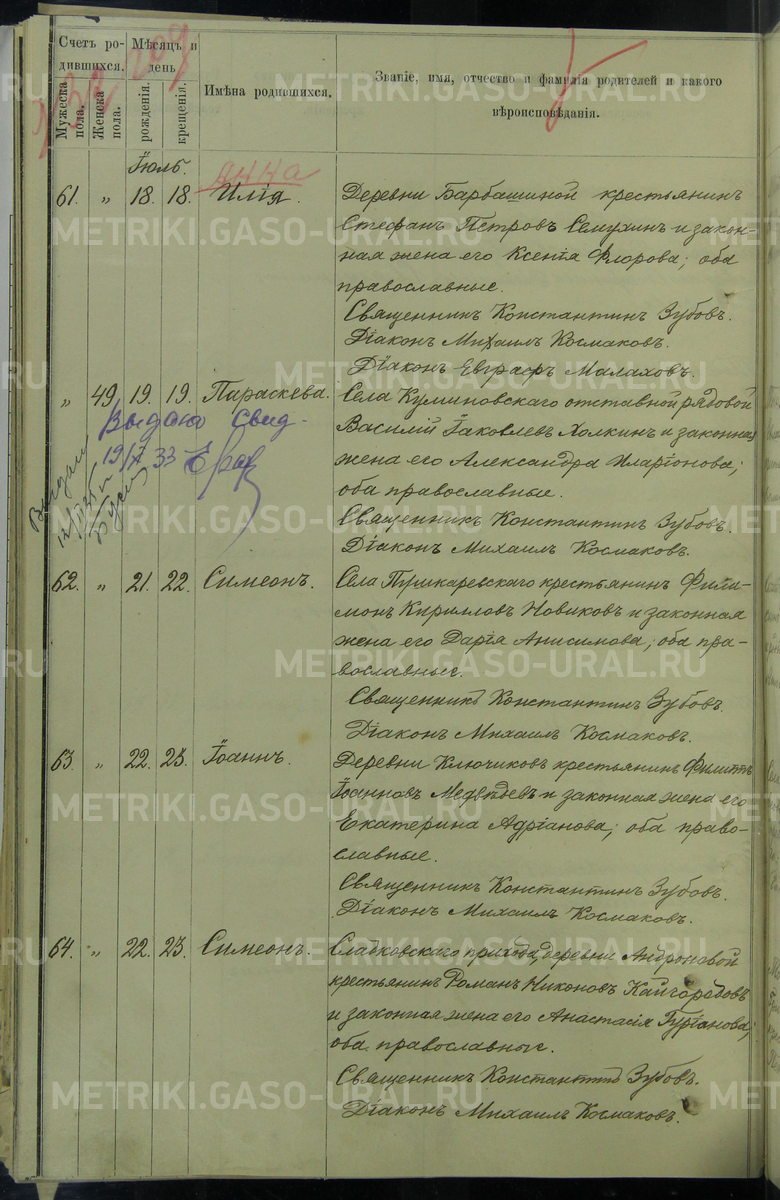 Счетъ ро-
дившихся.
Мѣсяцъ и
день
Мужеска
пола.
Женска
пола.
рожденія.
крещенія.
Имѣна родившихся.
Званіе, имя, отчество и фамилія родителей и какого
вѣроисповѣданія.
209
Іюль.
АННА
61. „ 18. 18. Илія.
Деревни Барбашиной крестьянинъ
Стефанъ Петровъ Семухинъ и закон-
ная жена его Ксенія Флорова; оба
православные.
Священникъ Константинъ Зубовъ.
Діаконъ Михаилъ Космаковъ.
Діаконъ Евграфъ Малаховъ.
„ 49. 19. 19. Параскева.
Села Куминовскаго отставной рядовой
Василій Іаковлевъ Холкинъ и законная
жена его Александра Иларіонова;
оба православные.
Священникъ Константинъ Зубовъ.
Діаконъ Михаилъ Космаковъ.
Выдано свид.
33
62. „ 21. 22. Симеонъ.
Села Пушкаревскаго крестьянинъ Фили-
монъ Кирилловъ Новиковъ и законная
жена его Дарія Анисимова; оба пра-
вославные.
Священникъ Константинъ Зубовъ.
Діаконъ Михаилъ Космаковъ.
63. „ 22. 23. Іоаннъ.
Деревни Ключиковъ крестьянинъ Филиппъ
Іоанновъ Медвѣдевъ и законная жена его
Екатерина Адріанова; оба право-
славные.
Священникъ Константинъ Зубовъ.
Діаконъ Михаилъ Космаковъ.
64. „ 22. 23. Симеонъ.
Сладковскаго прихода, деревни Андроновой
крестьянинъ Романъ Никоновъ Кайгородовъ
и законная жена его Анастасія Гуріанова;
оба православные.
Священникъ Константинъ Зубовъ.
Діаконъ Михаилъ Космаковъ.
METRIKI.GASO-URAL.RU